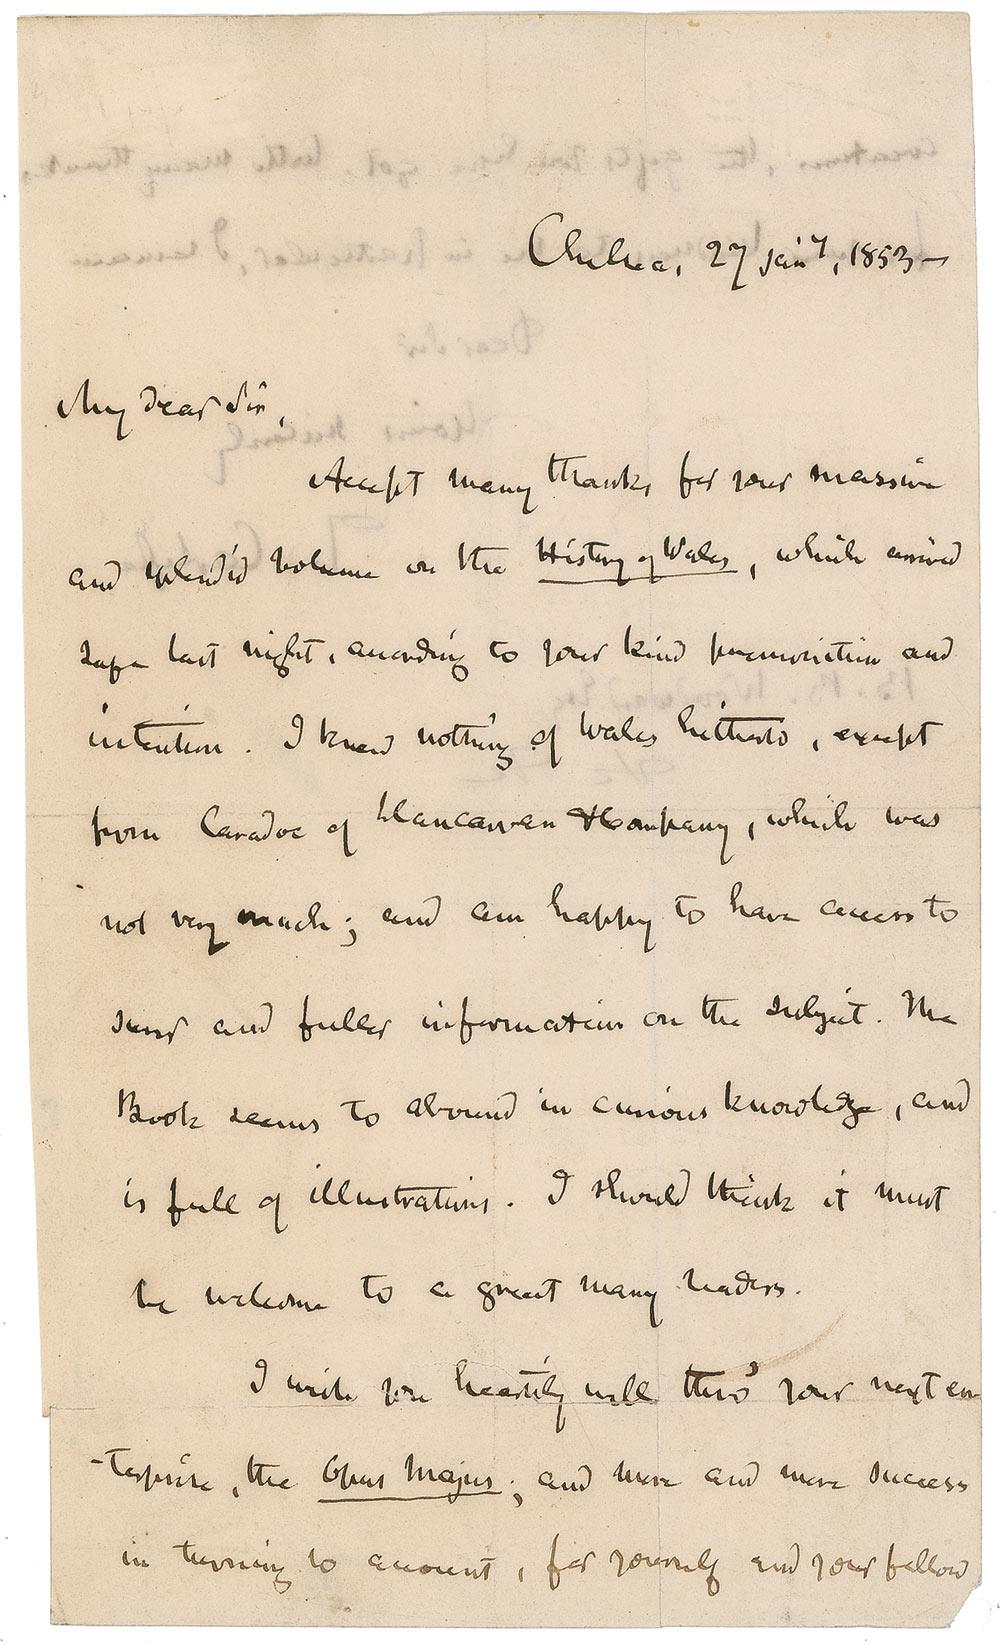 Chelsea, 27 jany, 1853 —
My dear Sir,
Accept many thanks for your massive
and splendid volume on the History of Wales, which arrived
safe last night, according to your kind premonition and
intention. I knew nothing of Wales hitherto, except
from Caradoc of Llancarvan & Company, which was
not very much; and am happy to have access to
surer and fuller information on the subject. The
Book seems to abound in curious knowledge, and
is full of illustrations. I should think it must
be welcome to a great many readers.
I wish you heartily well thro' your next en-
-terprise, the Opus Majus; and more and more success
in turning to account, for yourself and your fellow